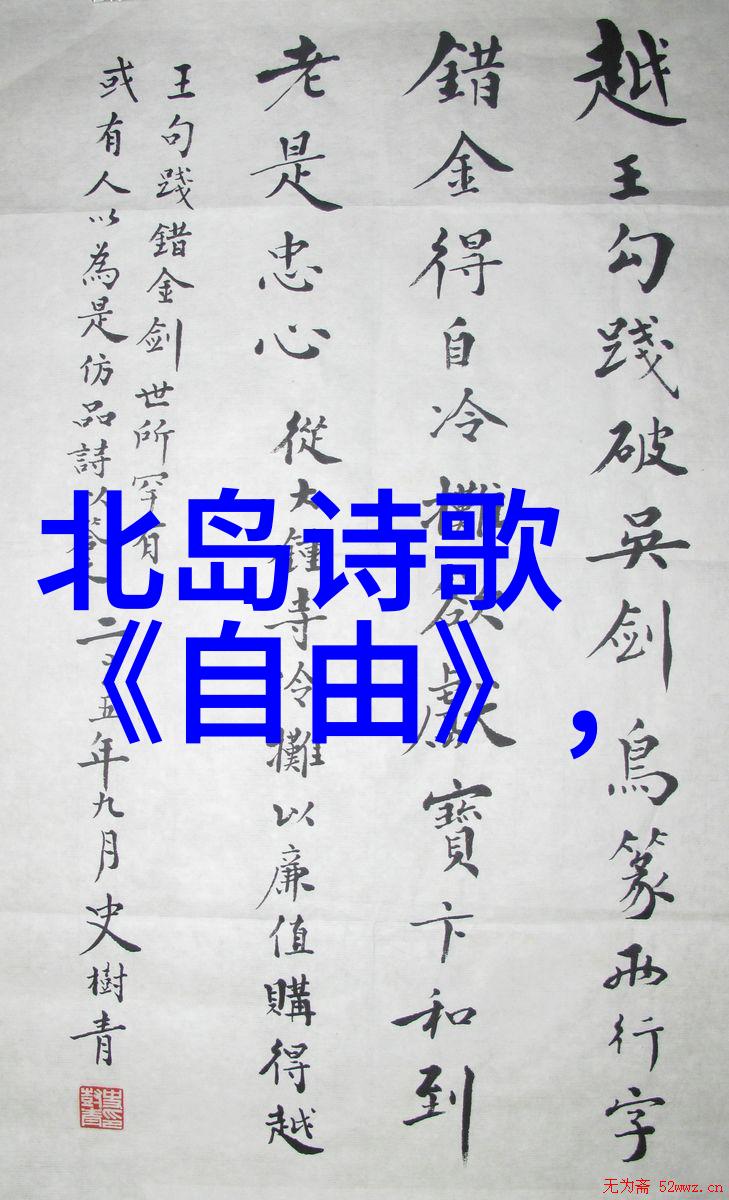 越王勾踐破吳劍鳥篆兩行字
錯金得自冷攤欲獻寶卞和到
老是忠心 從大鍾寺冷攤以廉值購得越
王句踐錯金劍世所罕有
或有人以為是仿品詩以答之 二〇〇五年九月史樹青
北岛诗歌
《自由》，
无为斋 52wwz.cn